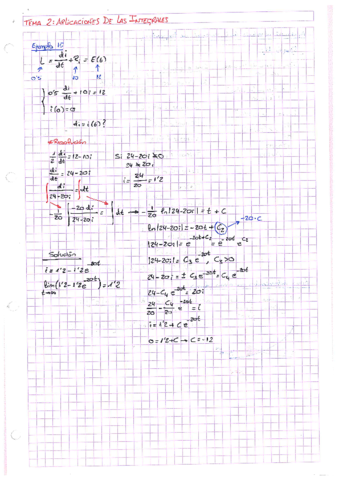 TEMA 2: APLICACIONES DE LAS INTEGRALES
Ejemplo 1C
L di/dt + Ri = E(t)
0'5 10 12
{ 0'5 di/dt + 10i = 12
i(0) = 0
¿i = i(t)?
Resolución
1/2 di/dt = 12 - 10i
di/dt = 24 - 20i
∫ di/(24-20i) = ∫ dt
Si 24-20i ≠ 0
24 ≠ 20i
i = 24/20 = 1'2
-1/20 ∫ -20di/(24-20i) = ∫ dt → -1/20 ln|24-20i| = t + C
ln|24-20i| = -20t + C₂ -20·C
|24-20i| = e^(-20t+C₂) = e^(-20t) e^(C₂)
|24-20i| = C₃ e^(-20t), C₃>0
24-20i = ± C₃ e^(-20t) = C₄ e^(-20t)
24 - C₄ e^(-20t) = 20i
24/20 - C₄/20 e^(-20t) = i
i = 1'2 + C e^(-20t)
0 = 1'2 + C → C = -12
Solución
i = 1'2 - 1'2e^(-20t)
lim (1'2 - 1'2e^(-20t)) = 1'2
t→∞